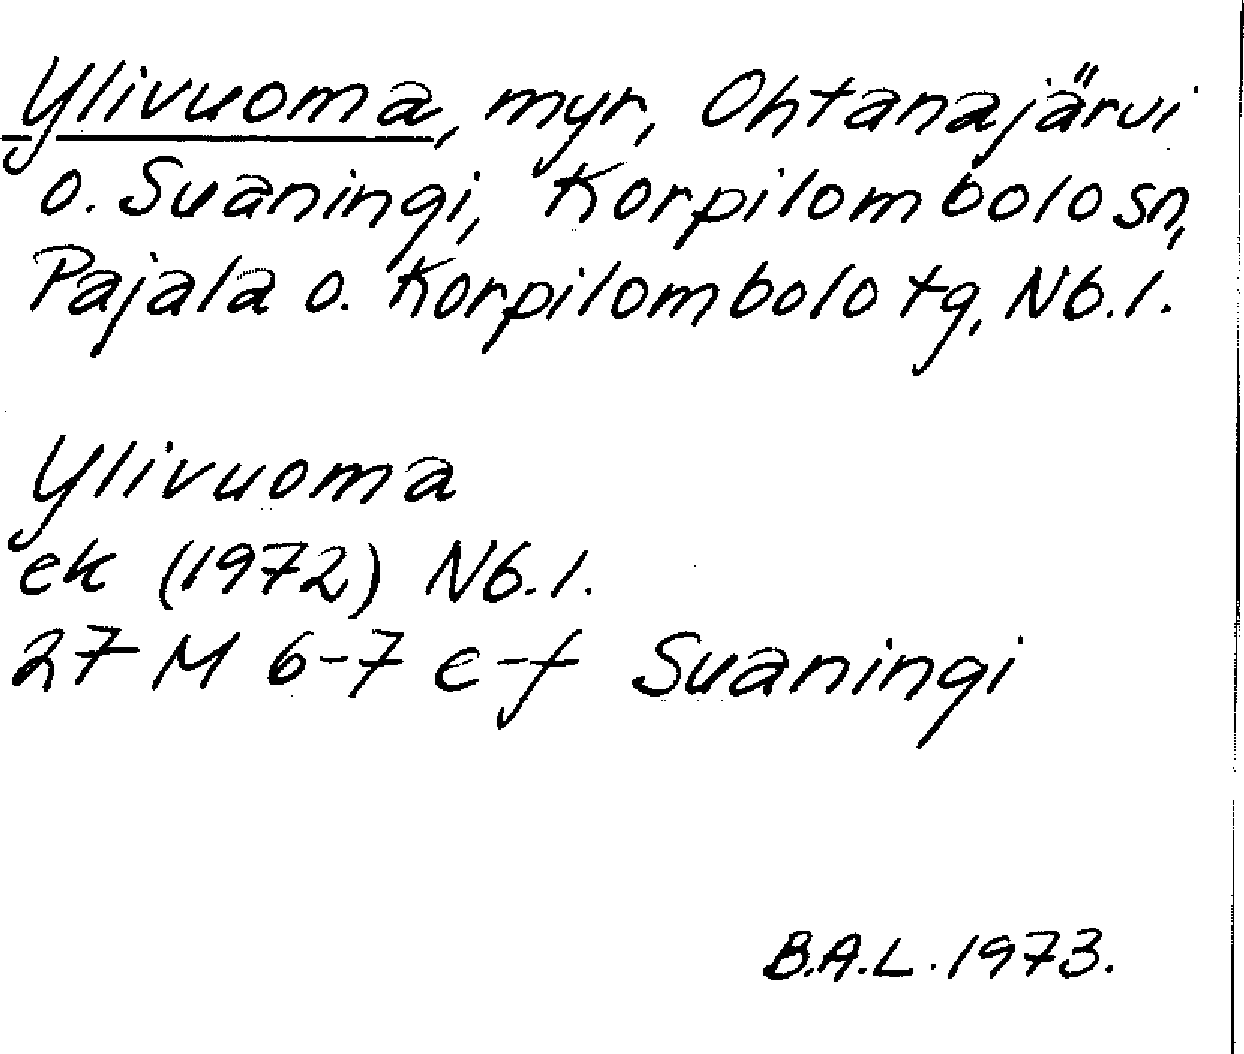 Ylivuoma, myr, Ohtanajärvi
o. Suaningi, Korpilombolo sn,
Pajala o. Korpilombolo tg, Nb.l.
Ylivuoma
ek (1972) Nb.l.
27 M 6-7 e-f Suaningi
B.A.L. 1973.